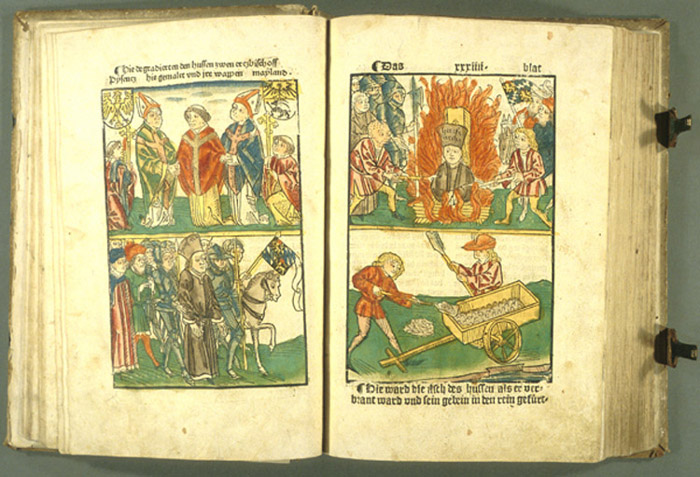 Hie degradierten den hussen zwen ertzbischoff
hie gemalet vnd ire wappen mayland.
Das xxxiiii. blat
Hie ward die Asch des hussen als er ver-
brant ward vnd sein gebein in den rein gefürt.